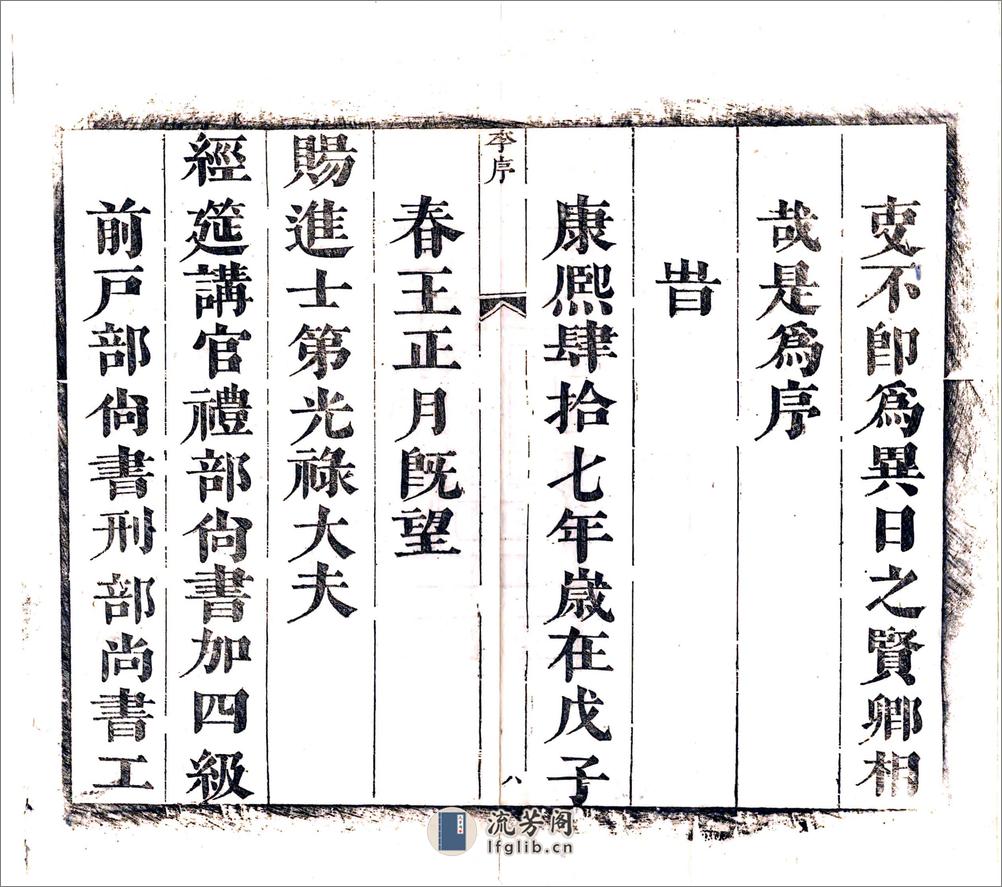 吏不卽爲異日之賢卿相
哉是爲序
旹
康熙肆拾七年歲在戊子
李序
八
春王正月旣望
賜進士第光祿大夫
經筵講官禮部尙書加四級
前戶部尙書刑部尙書工
流芳阁
lfglib.cn